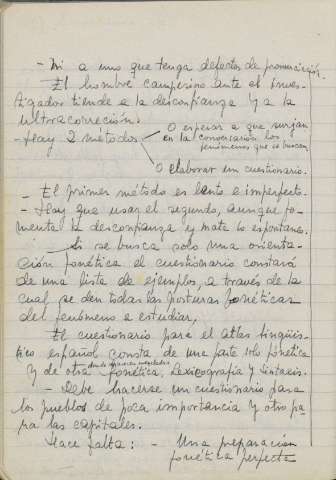 - Ni a uno que tenga defectos de pronunciación.
El hombre campesino ante el inves-
tigador tiende a la desconfianza y a la
ultracorreción.
- Hay 2 métodos
O esperar a que surjan
en la conversación los
fenómenos que se buscan
O elaborar un cuestionario.
- El primer método es lento e imperfecto.
- Hay que usar el segundo, aunque fo-
menta la desconfianza y mate lo espontáneo.
Si se busca solo una orienta-
ción fonética el cuestionario constará
de una lista de ejemplos, a través de la
cual se den todas las posturas fonéticas
del fenómeno a estudiar.
El cuestionario para el atlas lingüís-
tico español consta de una parte solo fonética
y de otra donde aparecen mezcladas fonética, Lexicografía y Sintaxis.
- Debe hacerse un cuestionario para
los pueblos de poca importancia y otro pa-
ra las capitales.
Hace falta: - Una preparación
fonética perfecta